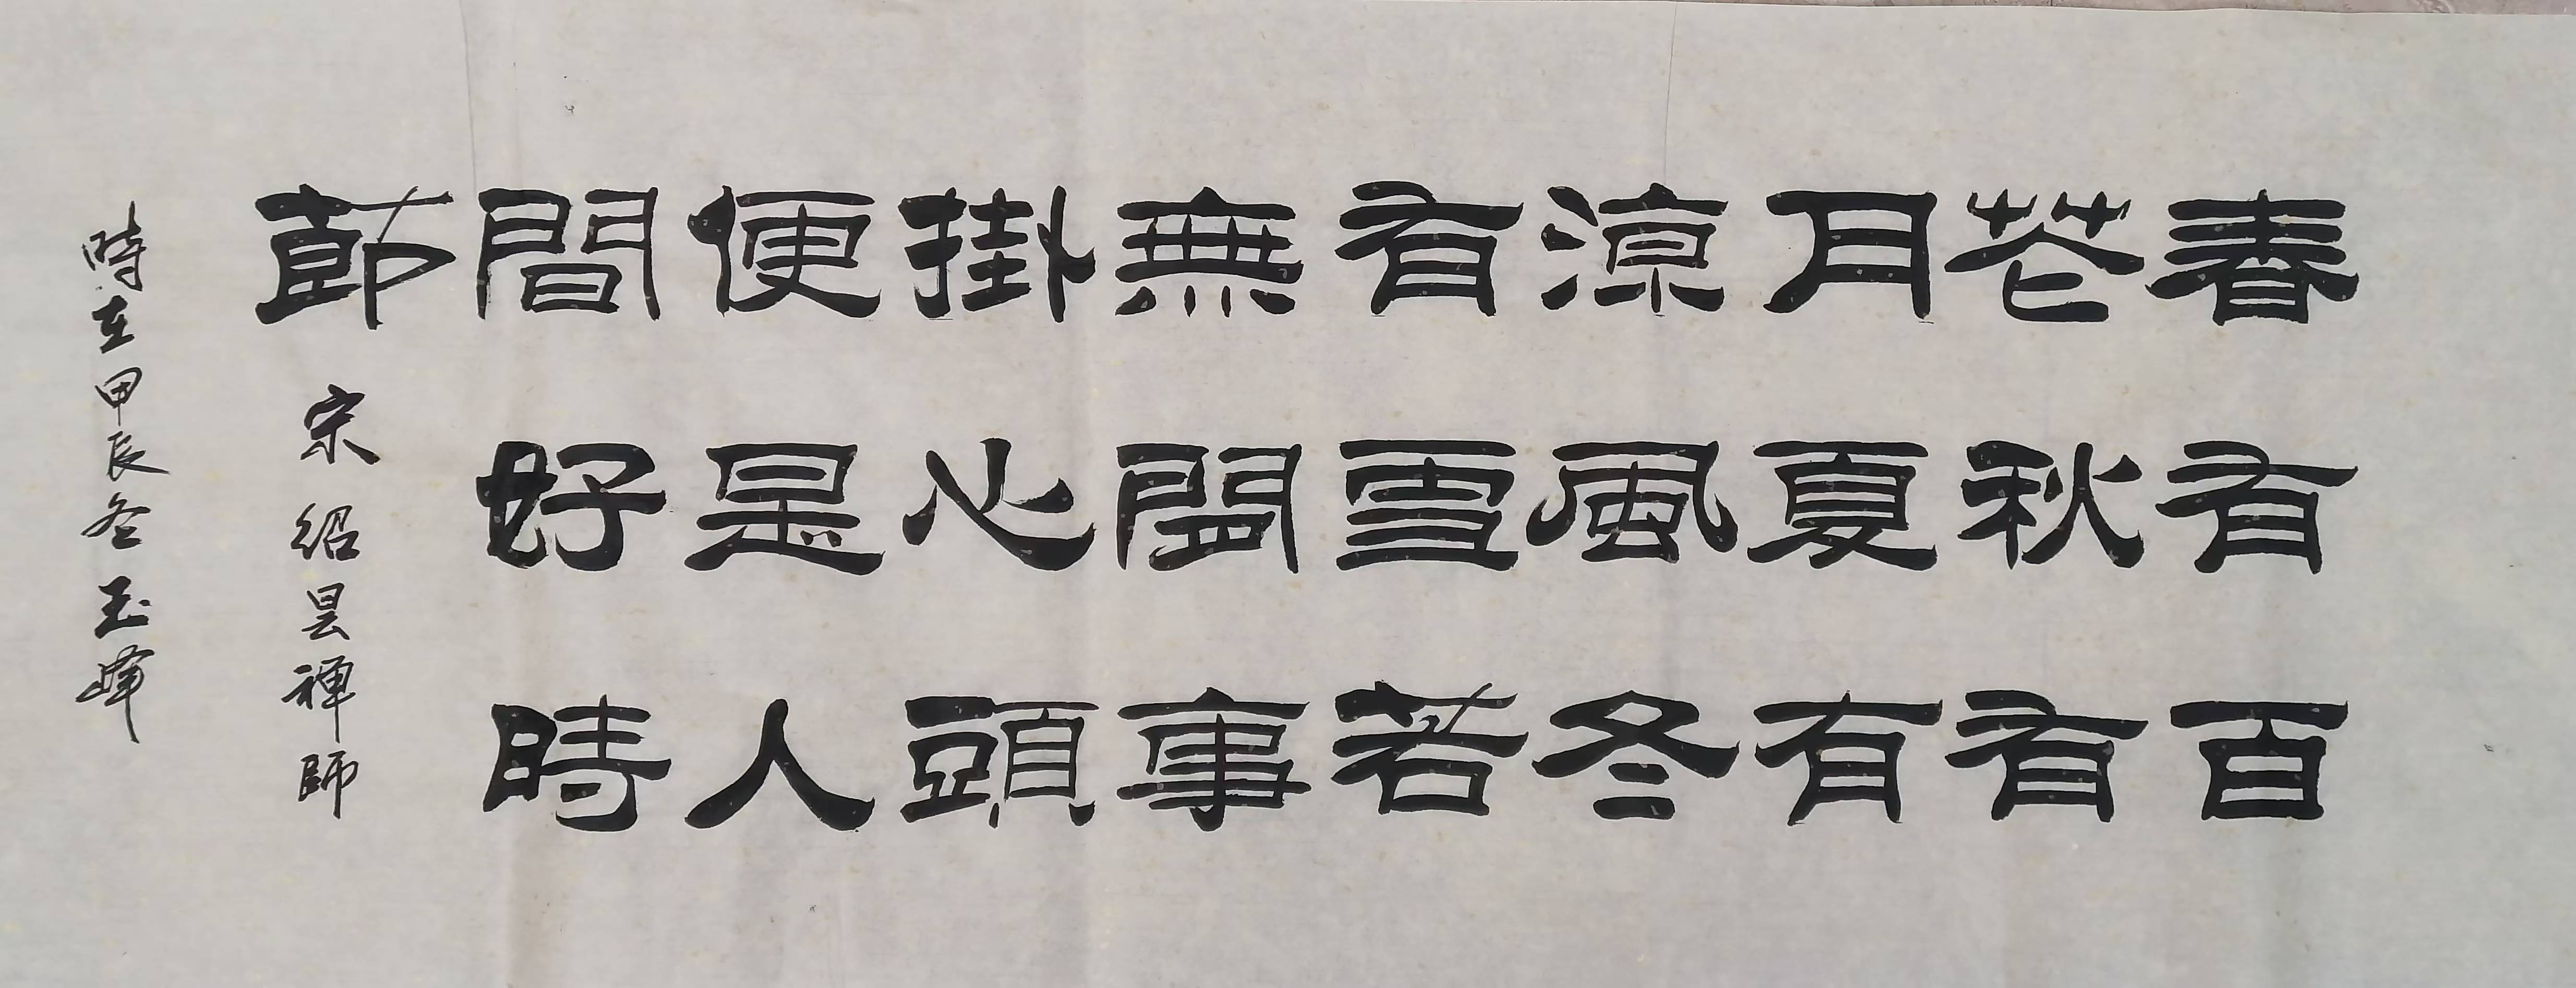 春有百
花秋有
月夏有
涼風冬
有雪若
無閒事
掛心頭
便是人
間好時
節
宋紹昙禅師
時在甲辰冬玉峰